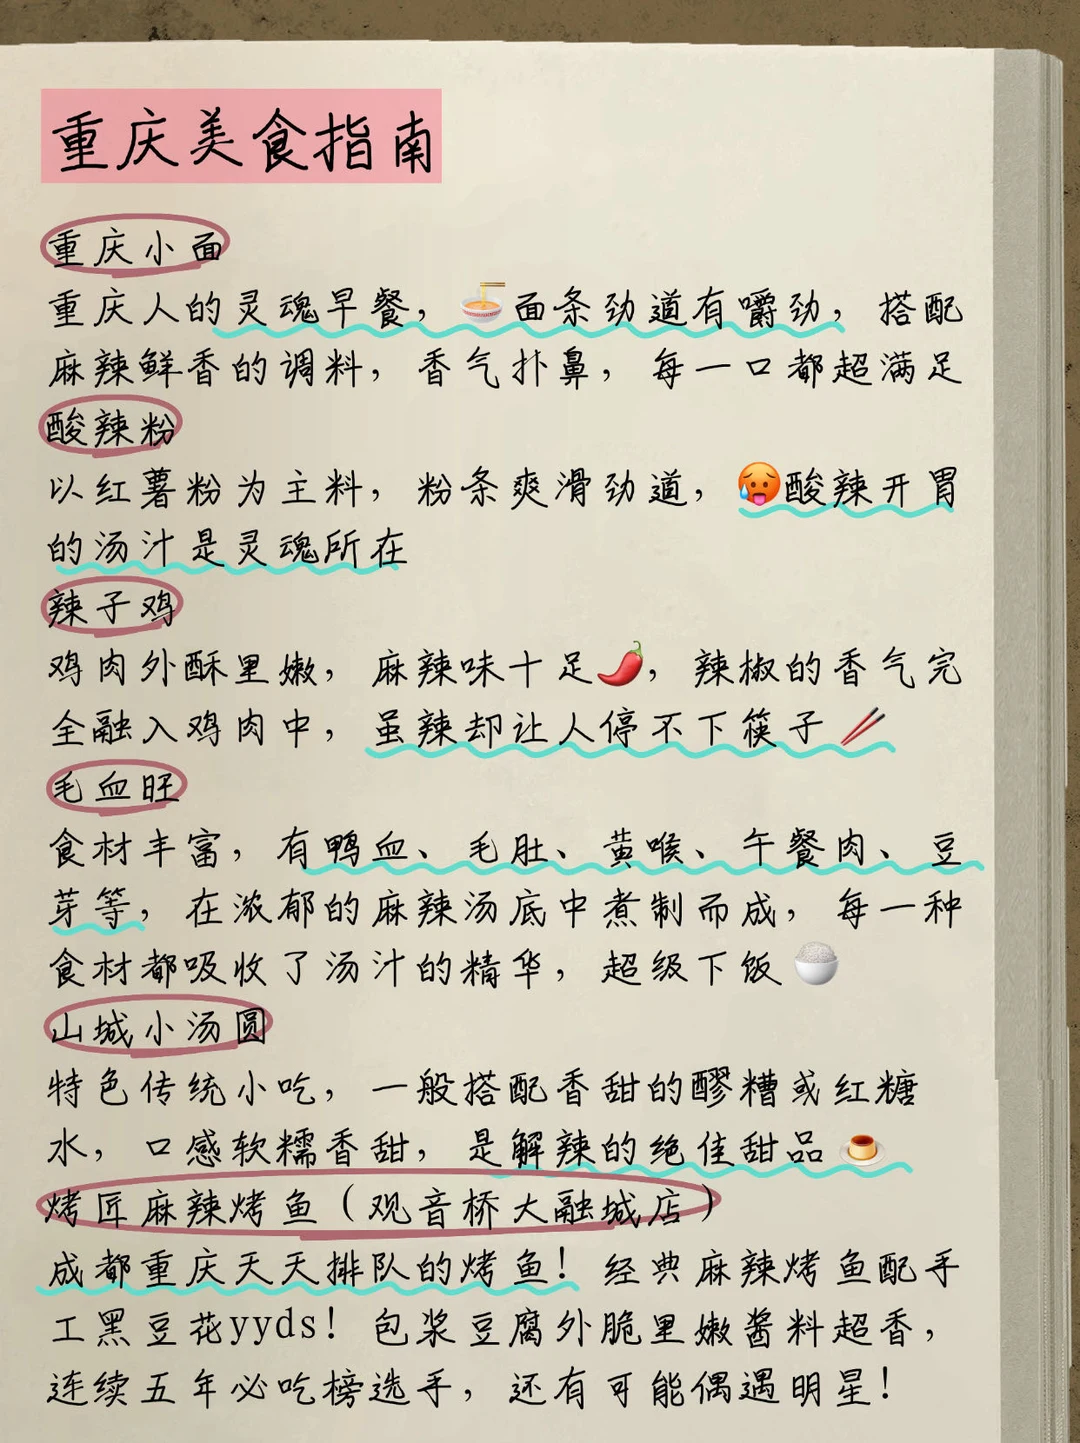 重庆美食指南
重庆小面
重庆人的灵魂早餐，🍜面条劲道有嚼劲，搭配
麻辣鲜香的调料，香气扑鼻，每一口都超满足
酸辣粉
以红薯粉为主料，粉条爽滑劲道，🥵酸辣开胃
的汤汁是灵魂所在
辣子鸡
鸡肉外酥里嫩，麻辣味十足🌶️，辣椒的香气完
全融入鸡肉中，虽辣却让人停不下筷子🥢
毛血旺
食材丰富，有鸭血、毛肚、黄喉、午餐肉、豆
芽等，在浓郁的麻辣汤底中煮制而成，每一种
食材都吸收了汤汁的精华，超级下饭🍚
山城小汤圆
特色传统小吃，一般搭配香甜的醪糟或红糖
水，口感软糯香甜，是解辣的绝佳甜品🍮
烤匠麻辣烤鱼（观音桥大融城店）
成都重庆天天排队的烤鱼！经典麻辣烤鱼配手
工黑豆花yyds！包浆豆腐外脆里嫩酱料超香，
连续五年必吃榜选手，还有可能偶遇明星！